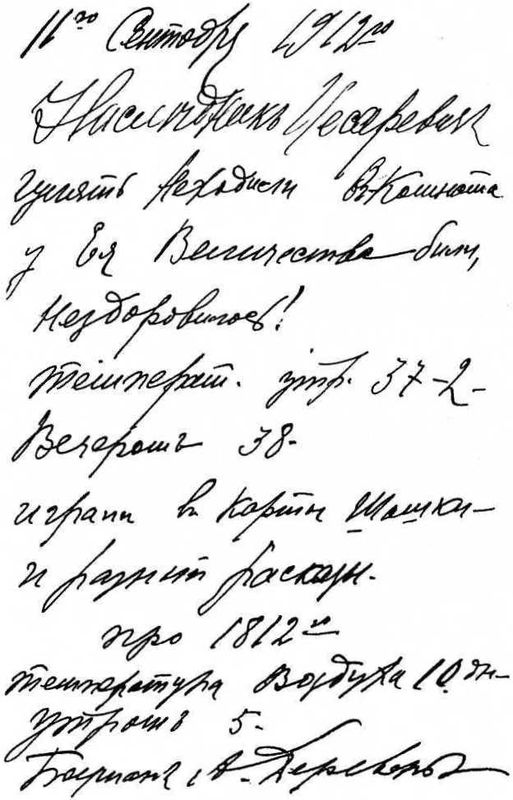 11го Сентября 1912го
Наследникъ Цесаревичъ
гулять неходили въ Комната
у Ея Величества были,
нездоровилось!
температ. утр. 37-2-
Вечеромъ 38-
играли въ карты шашки-
и разныя расказы.
про 1812го
температура Воздуха 10 дн-
утромъ 5-
Боцманъ А. Деревенько